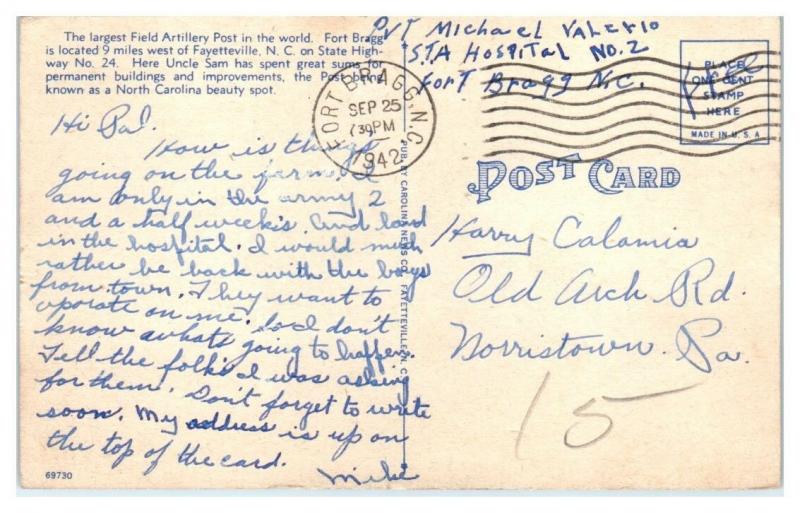 The largest Field Artillery Post in the world. Fort Bragg
is located 9 miles west of Fayetteville, N. C. on State High-
way No. 24. Here Uncle Sam has spent great sums for
permanent buildings and improvements, the Post being
known as a North Carolina beauty spot.
Pvt Michael Valerio
STA Hospital No. 2
Fort Bragg N.C.
FORT BRAGG, N.C.
SEP 25
7 30 PM
1942
Free
PLACE
ONE CENT
STAMP
HERE
MADE IN U. S. A.
POST CARD
Hi Pal.
How is things
going on the farm. I
am only in the army 2
and a half week's. And land
in the hospital. I would much
rather be back with the boys
from town. They want to
oporate on me. So I don't
know whats going to happen.
Tell the folks I was asking
for them. Don't forget to write
soon. My address is up on
the top of the card.
Mike
69730
PUB. BY CAROLINA NEWS CO., FAYETTEVILLE, N. C.
Harry Calamia
Old Arch Rd.
Norristown, Pa.
15